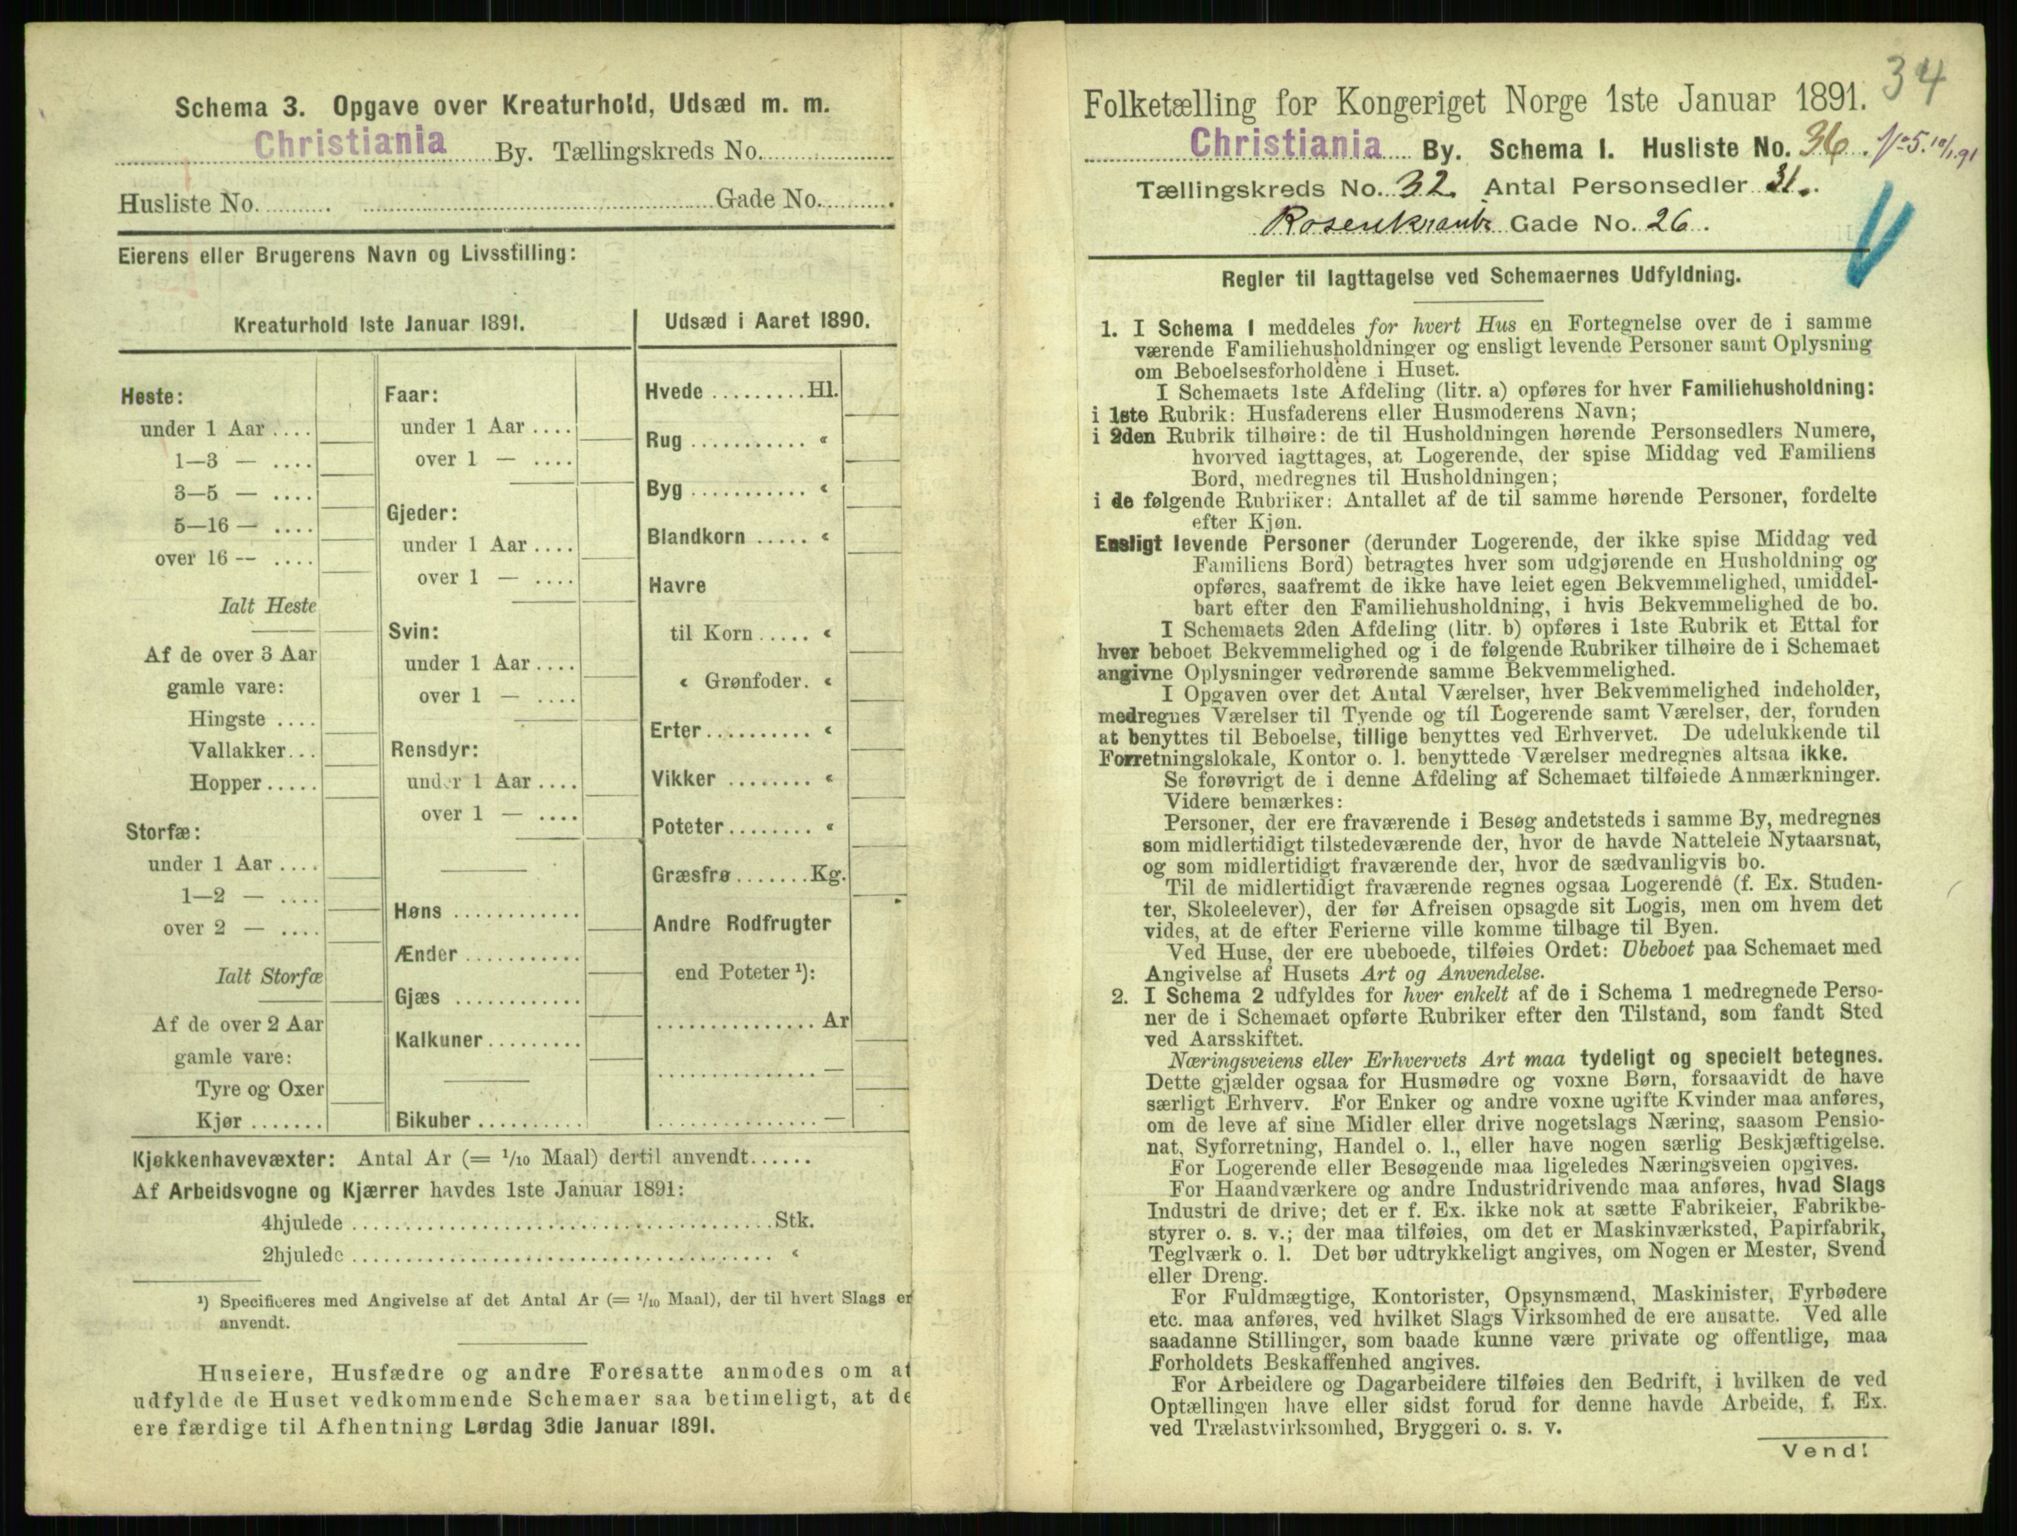 Schema 3. Opgave over Kreaturhold, Udsæd m. m.
Christiania By. Tællingskreds No.
Husliste No. Gade No.
Eierens eller Brugerens Navn og Livsstilling:
Kreaturhold 1ste Januar 1891.
Heste:
under 1 Aar ....
1—3 — ....
3—5 — ....
5—16 — ....
over 16 — ....
Ialt Heste
Af de over 3 Aar
gamle vare:
Hingste ....
Vallakker...
Hopper.....
Storfæ:
under 1 Aar ....
1—2 — ....
over 2 — ....
Ialt Storfæ
Af de over 2 Aar
gamle vare:
Tyre og Oxer
Kjør .......
Faar:
under 1 Aar ....
over 1 — ....
Gjeder:
under 1 Aar ....
over 1 — ....
Svin:
under 1 Aar ....
over 1 — ....
Rensdyr:
under 1 Aar ....
over 1 — ....
Høns ............
Ænder ...........
Gjæs ............
Kalkuner.........
Bikuber ..........
Udsæd i Aaret 1890.
Hvede .........Hl.
Rug ........... «
Byg ........... «
Blandkorn ..... «
Havre
til Korn ..... «
« Grønfoder. «
Erter.......... «
Vikker ........ «
Poteter........ «
Græsfrø .......Kg.
Andre Rodfrugter
end Poteter ¹):
............... Ar
............... —
............... —
Kjøkkenhavevæxter: Antal Ar (= 1/10 Maal) dertil anvendt......
Af Arbeidsvogne og Kjærrer havdes 1ste Januar 1891:
4hjulede ........................................Stk.
2hjulede ........................................ «
¹) Specificeres med Angivelse af det Antal Ar (= 1/10 Maal), der til hvert Slags er
anvendt.
Huseiere, Husfædre og andre Foresatte anmodes om at
udfylde de Huset vedkommende Schemaer saa betimeligt, at de
ere færdige til Afhentning Lørdag 3die Januar 1891.
34
Folketælling for Kongeriget Norge 1ste Januar 1891.
Christiania By. Schema 1. Husliste No. 36. No 5. 10/1 91
Tællingskreds No. 32. Antal Personsedler 31.
Rosenkrantz Gade No. 26.
Regler til Iagttagelse ved Schemaernes Udfyldning.
1. I Schema 1 meddeles for hvert Hus en Fortegnelse over de i samme
værende Familiehusholdninger og ensligt levende Personer samt Oplysning
om Beboelsesforholdene i Huset.
I Schemaets 1ste Afdeling (litr. a) opføres for hver Familiehusholdning:
i 1ste Rubrik: Husfaderens eller Husmoderens Navn;
i 2den Rubrik tilhøire: de til Husholdningen hørende Personsedlers Numere,
hvorved iagttages, at Logerende, der spise Middag ved Familiens
Bord, medregnes til Husholdningen;
i de følgende Rubriker: Antallet af de til samme hørende Personer, fordelte
efter Kjøn.
Ensligt levende Personer (derunder Logerende, der ikke spise Middag ved
Familiens Bord) betragtes hver som udgjørende en Husholdning og
opføres, saafremt de ikke have leiet egen Bekvemmelighed, umiddel-
bart efter den Familiehusholdning, i hvis Bekvemmelighed de bo.
I Schemaets 2den Afdeling (litr. b) opføres i 1ste Rubrik et Ettal for
hver beboet Bekvemmelighed og i de følgende Rubriker tilhøire de i Schemaet
angivne Oplysninger vedrørende samme Bekvemmelighed.
I Opgaven over det Antal Værelser, hver Bekvemmelighed indeholder,
medregnes Værelser til Tyende og til Logerende samt Værelser, der, foruden
at benyttes til Beboelse, tillige benyttes ved Erhvervet. De udelukkende til
Forretningslokale, Kontor o. l. benyttede Værelser medregnes altsaa ikke.
Se forøvrigt de i denne Afdeling af Schemaet tilføiede Anmærkninger.
Videre bemærkes:
Personer, der ere fraværende i Besøg andetsteds i samme By, medregnes
som midlertidigt tilstedeværende der, hvor de havde Natteleie Nytaarsnat,
og som midlertidigt fraværende der, hvor de sædvanligvis bo.
Til de midlertidigt fraværende regnes ogsaa Logerende (f. Ex. Studen-
ter, Skoleelever), der før Afreisen opsagde sit Logis, men om hvem det
vides, at de efter Ferierne ville komme tilbage til Byen.
Ved Huse, der ere ubeboede, tilføies Ordet: Ubeboet paa Schemaet med
Angivelse af Husets Art og Anvendelse.
2. I Schema 2 udfyldes for hver enkelt af de i Schema 1 medregnede Perso-
ner de i Schemaet opførte Rubriker efter den Tilstand, som fandt Sted
ved Aarsskiftet.
Næringsveiens eller Erhvervets Art maa tydeligt og specielt betegnes.
Dette gjælder ogsaa for Husmødre og voxne Børn, forsaavidt de have
særligt Erhverv. For Enker og andre voxne ugifte Kvinder maa anføres,
om de leve af sine Midler eller drive nogetslags Næring, saasom Pensio-
nat, Syforretning, Handel o. l., eller have nogen særlig Beskjæftigelse.
For Logerende eller Besøgende maa ligeledes Næringsveien opgives.
For Haandværkere og andre Industridrivende maa anføres, hvad Slags
Industri de drive; det er f. Ex. ikke nok at sætte Fabrikeier, Fabrikbe-
styrer o. s. v.; der maa tilføies, om det er Maskinværksted, Papirfabrik,
Teglværk o. l. Det bør udtrykkeligt angives, om Nogen er Mester, Svend
eller Dreng.
For Fuldmægtige, Kontorister, Opsynsmænd, Maskinister, Fyrbødere
etc. maa anføres, ved hvilket Slags Virksomhed de ere ansatte. Ved alle
saadanne Stillinger, som baade kunne være private og offentlige, maa
Forholdets Beskaffenhed angives.
For Arbeidere og Dagarbeidere tilføies den Bedrift, i hvilken de ved
Optællingen have eller sidst forud for denne havde Arbeide, f. Ex.
ved Trælastvirksomhed, Bryggeri o. s. v.
Vend!